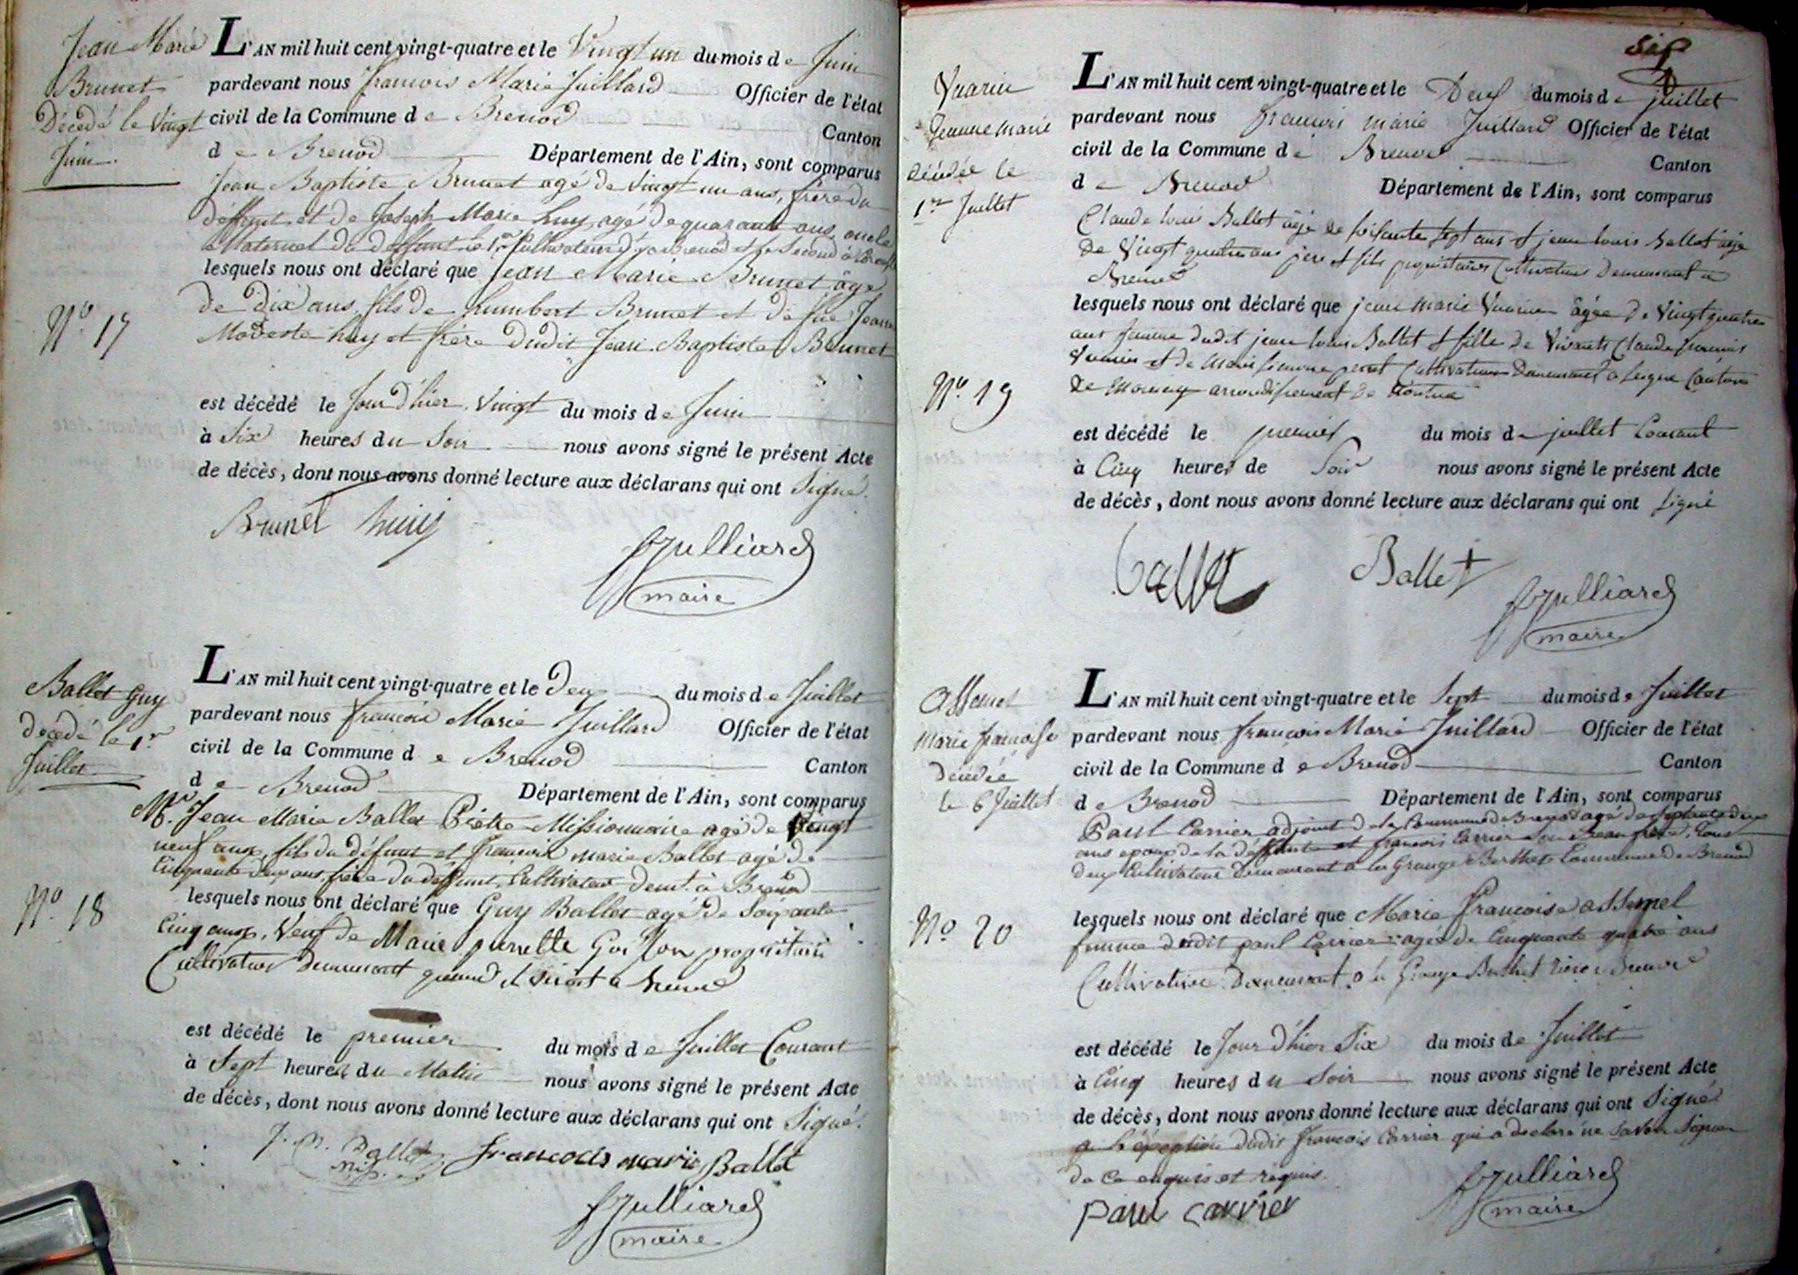 Jean Marie
Brunet
Décédé le Vingt
Juin.
N.º 17
L'AN mil huit cent vingt-quatre et le Vingt un du mois de Juin
pardevant nous francois Marie Juillard Officier de l'état
civil de la Commune de Brenod
Canton
de Brenod Département de l'Ain, sont comparus
Jean Baptiste Brunet agé de vingt un ans, frère du
deffunt et de Joseph Marie huy agé de quarante ans oncle
Maternel du deffunt le 1er Cultivateur à Brenod et le Second à
lesquels nous ont déclaré que Jean Marie Brunet âgé
de dix ans fils de humbert Brunet et de feu Jeanne
Modeste huy et frère dudit Jean Baptiste Brunet
est décédé le Jour d'hier Vingt du mois de Juin
à Six heures du Soir nous avons signé le présent Acte
de décès, dont nous avons donné lecture aux déclarans qui ont Signé.
Brunet huy
Julliard
maire
Ballet Guy
décédé le 1er
Juillet
N.º 18
L'AN mil huit cent vingt-quatre et le Deux du mois de Juillet
pardevant nous francois Marie Juillard Officier de l'état
civil de la Commune de Brenod
Canton
de Brenod Département de l'Ain, sont comparus
Mr. Jean Marie Ballet Prêtre Missionnaire agé de Vingt
neuf ans, fils du défunt et francois marie Ballet agé de
Cinquante deux ans, frère du deffunt, Cultivateur demt. à Brenod
lesquels nous ont déclaré que Guy Ballet agé de Soixante
Cinq ans, Veuf de Marie pernette Goi propriétaire
Cultivateur demeurant quand il vivoit à Brenod
est décédé le premier du mois de Juillet Courant
à Sept heures du Matin nous avons signé le présent Acte
de décès, dont nous avons donné lecture aux déclarans qui ont Signé.
J. M. Ballet francois marie Ballet
mis.
Julliard
maire
Six
Vuarin
Jeanne marie
décédée le
1er Juillet
N.º 19
L'AN mil huit cent vingt-quatre et le Deux du mois de juillet
pardevant nous francois marie Juillard Officier de l'état
civil de la Commune de Brenod
Canton
de Brenod Département de l'Ain, sont comparus
Claude louis Ballet âgé de soixante sept ans et jean louis Ballet âgé
de Vingt quatre ans père et fils propriétaires Cultivateurs Demeurant a
Brenod
lesquels nous ont déclaré que jeane marie Vuarin âgée de Vingt quatre
ans femme dudit jean louis Ballet et fille de Vivants Claude francois
Vuarin et de Marie Cultivateurs Demeurant à Leyssa Canton
de arrondissement de Nantua
est décédé le premier du mois de juillet Courant
à Cinq heures de Soir nous avons signé le présent Acte
de décès, dont nous avons donné lecture aux déclarans qui ont Signé
Ballet Ballet
Julliard
maire
Assemet
Marie francoise
Décédée
le 6 Juillet
N.º 20
L'AN mil huit cent vingt-quatre et le Sept du mois de Juillet
pardevant nous francois Marie Juillard Officier de l'état
civil de la Commune de Brenod
Canton
de Brenod Département de l'Ain, sont comparus
Paul Carrier adjoint de la Commune de Brenod agé de Soixante deux
ans epoux de la deffunte et francois Carrier Son Beau frère, tous
deux Cultivateurs Demeurant à la Grange Berthet Commune de Brenod
lesquels nous ont déclaré que Marie francoise Assemet
femme dudit paul Carrier agée de Cinquante quatre ans
Cultivatrice Demeurant à la Grange Berthet Brenod
est décédé le Jour d'hier Six du mois de Juillet
à Cinq heures du Soir nous avons signé le présent Acte
de décès, dont nous avons donné lecture aux déclarans qui ont Signé
a l'exception dudit francois Carrier qui a declaré ne savoir Signer
de ce enquis et requis.
paul carrier
Julliard
maire